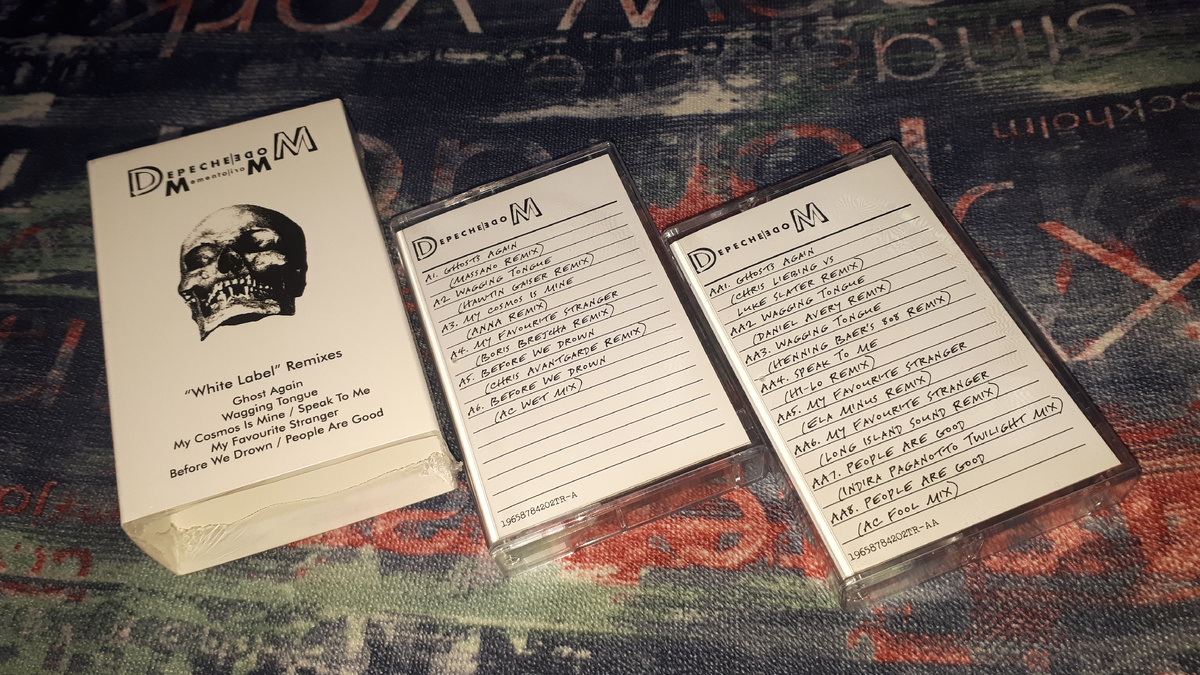 DEPECHE MODE
Memento Mori
"White Label" Remixes
Ghost Again
Wagging Tongue
My Cosmos Is Mine / Speak To Me
My Favourite Stranger
Before We Drown / People Are Good
DEPECHE MODE
A1. GHOSTS AGAIN
(MASSANO REMIX)
A2 WAGGING TONGUE
(HAWTIN GAISER REMIX)
A3. MY COSMOS IS MINE
(ANNA REMIX)
A4. MY FAVOURITE STRANGER
(BORIS BREJCHA REMIX)
A5. BEFORE WE DROWN
(CHRIS AVANTGARDE REMIX)
A6. BEFORE WE DROWN
(AC WET MIX)
19658784202TR-A
DEPECHE MODE
AA1. GHOSTS AGAIN
(CHRIS LIEBING VS
LUKE SLATER REMIX)
AA2 WAGGING TONGUE
(DANIEL AVERY REMIX)
AA3. WAGGING TONGUE
(HENNING BAER'S 808 REMIX)
AA4. SPEAK TO ME
(HI-LO REMIX)
AA5. MY FAVOURITE STRANGER
(ELA MINUS REMIX)
AA6. MY FAVOURITE STRANGER
(LONG ISLAND SOUND REMIX)
AA7. PEOPLE ARE GOOD
(INDIRA PAGANOTTO TWILIGHT MIX)
AA8. PEOPLE ARE GOOD
(AC FOOL MIX)
19658784202TR-AA
single
ockholm